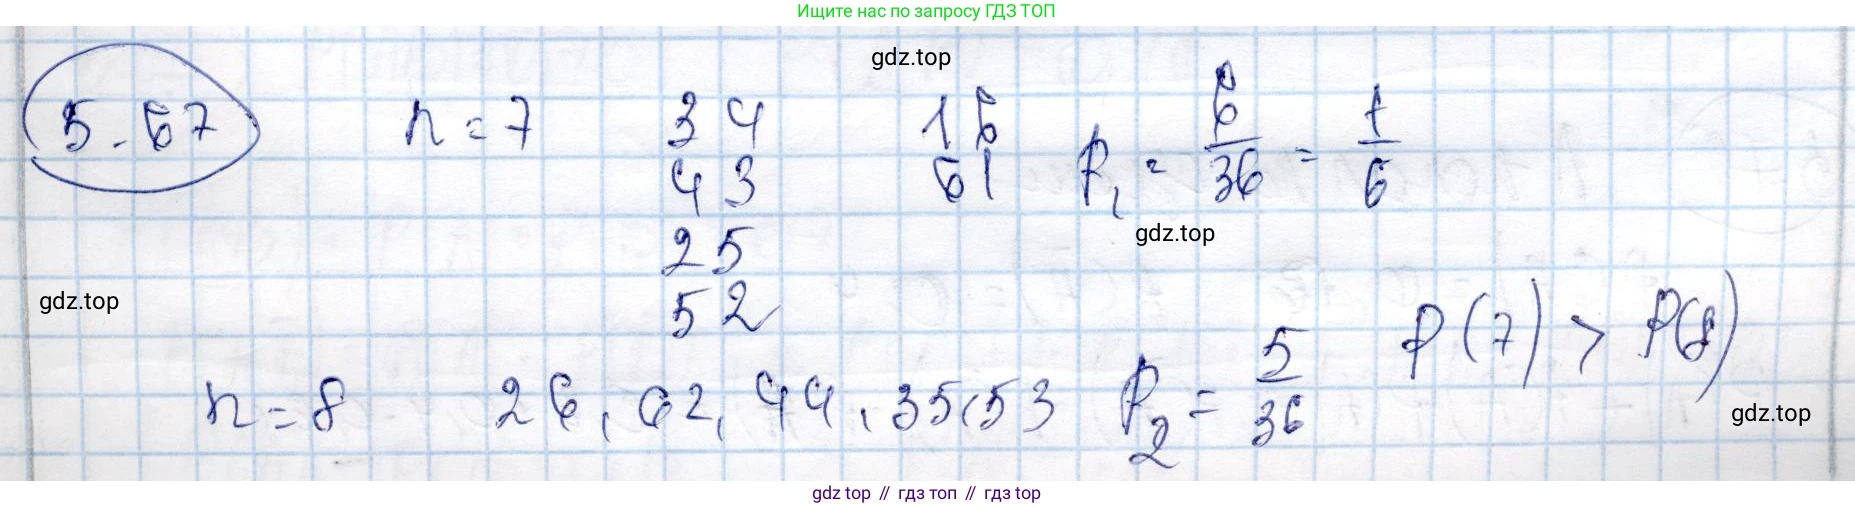 Ищите нас по запросу ГДЗ ТОП
gdz.top
5.67 n=7 34 16 P₁ = 6/36 = 1/6
43 61
gdz.top
25
gdz.top
52
P(7) > P(8)
n=8 26, 62, 44, 35, 53 P₂ = 5/36
gdz.top
gdz top // гдз топ // гдз top